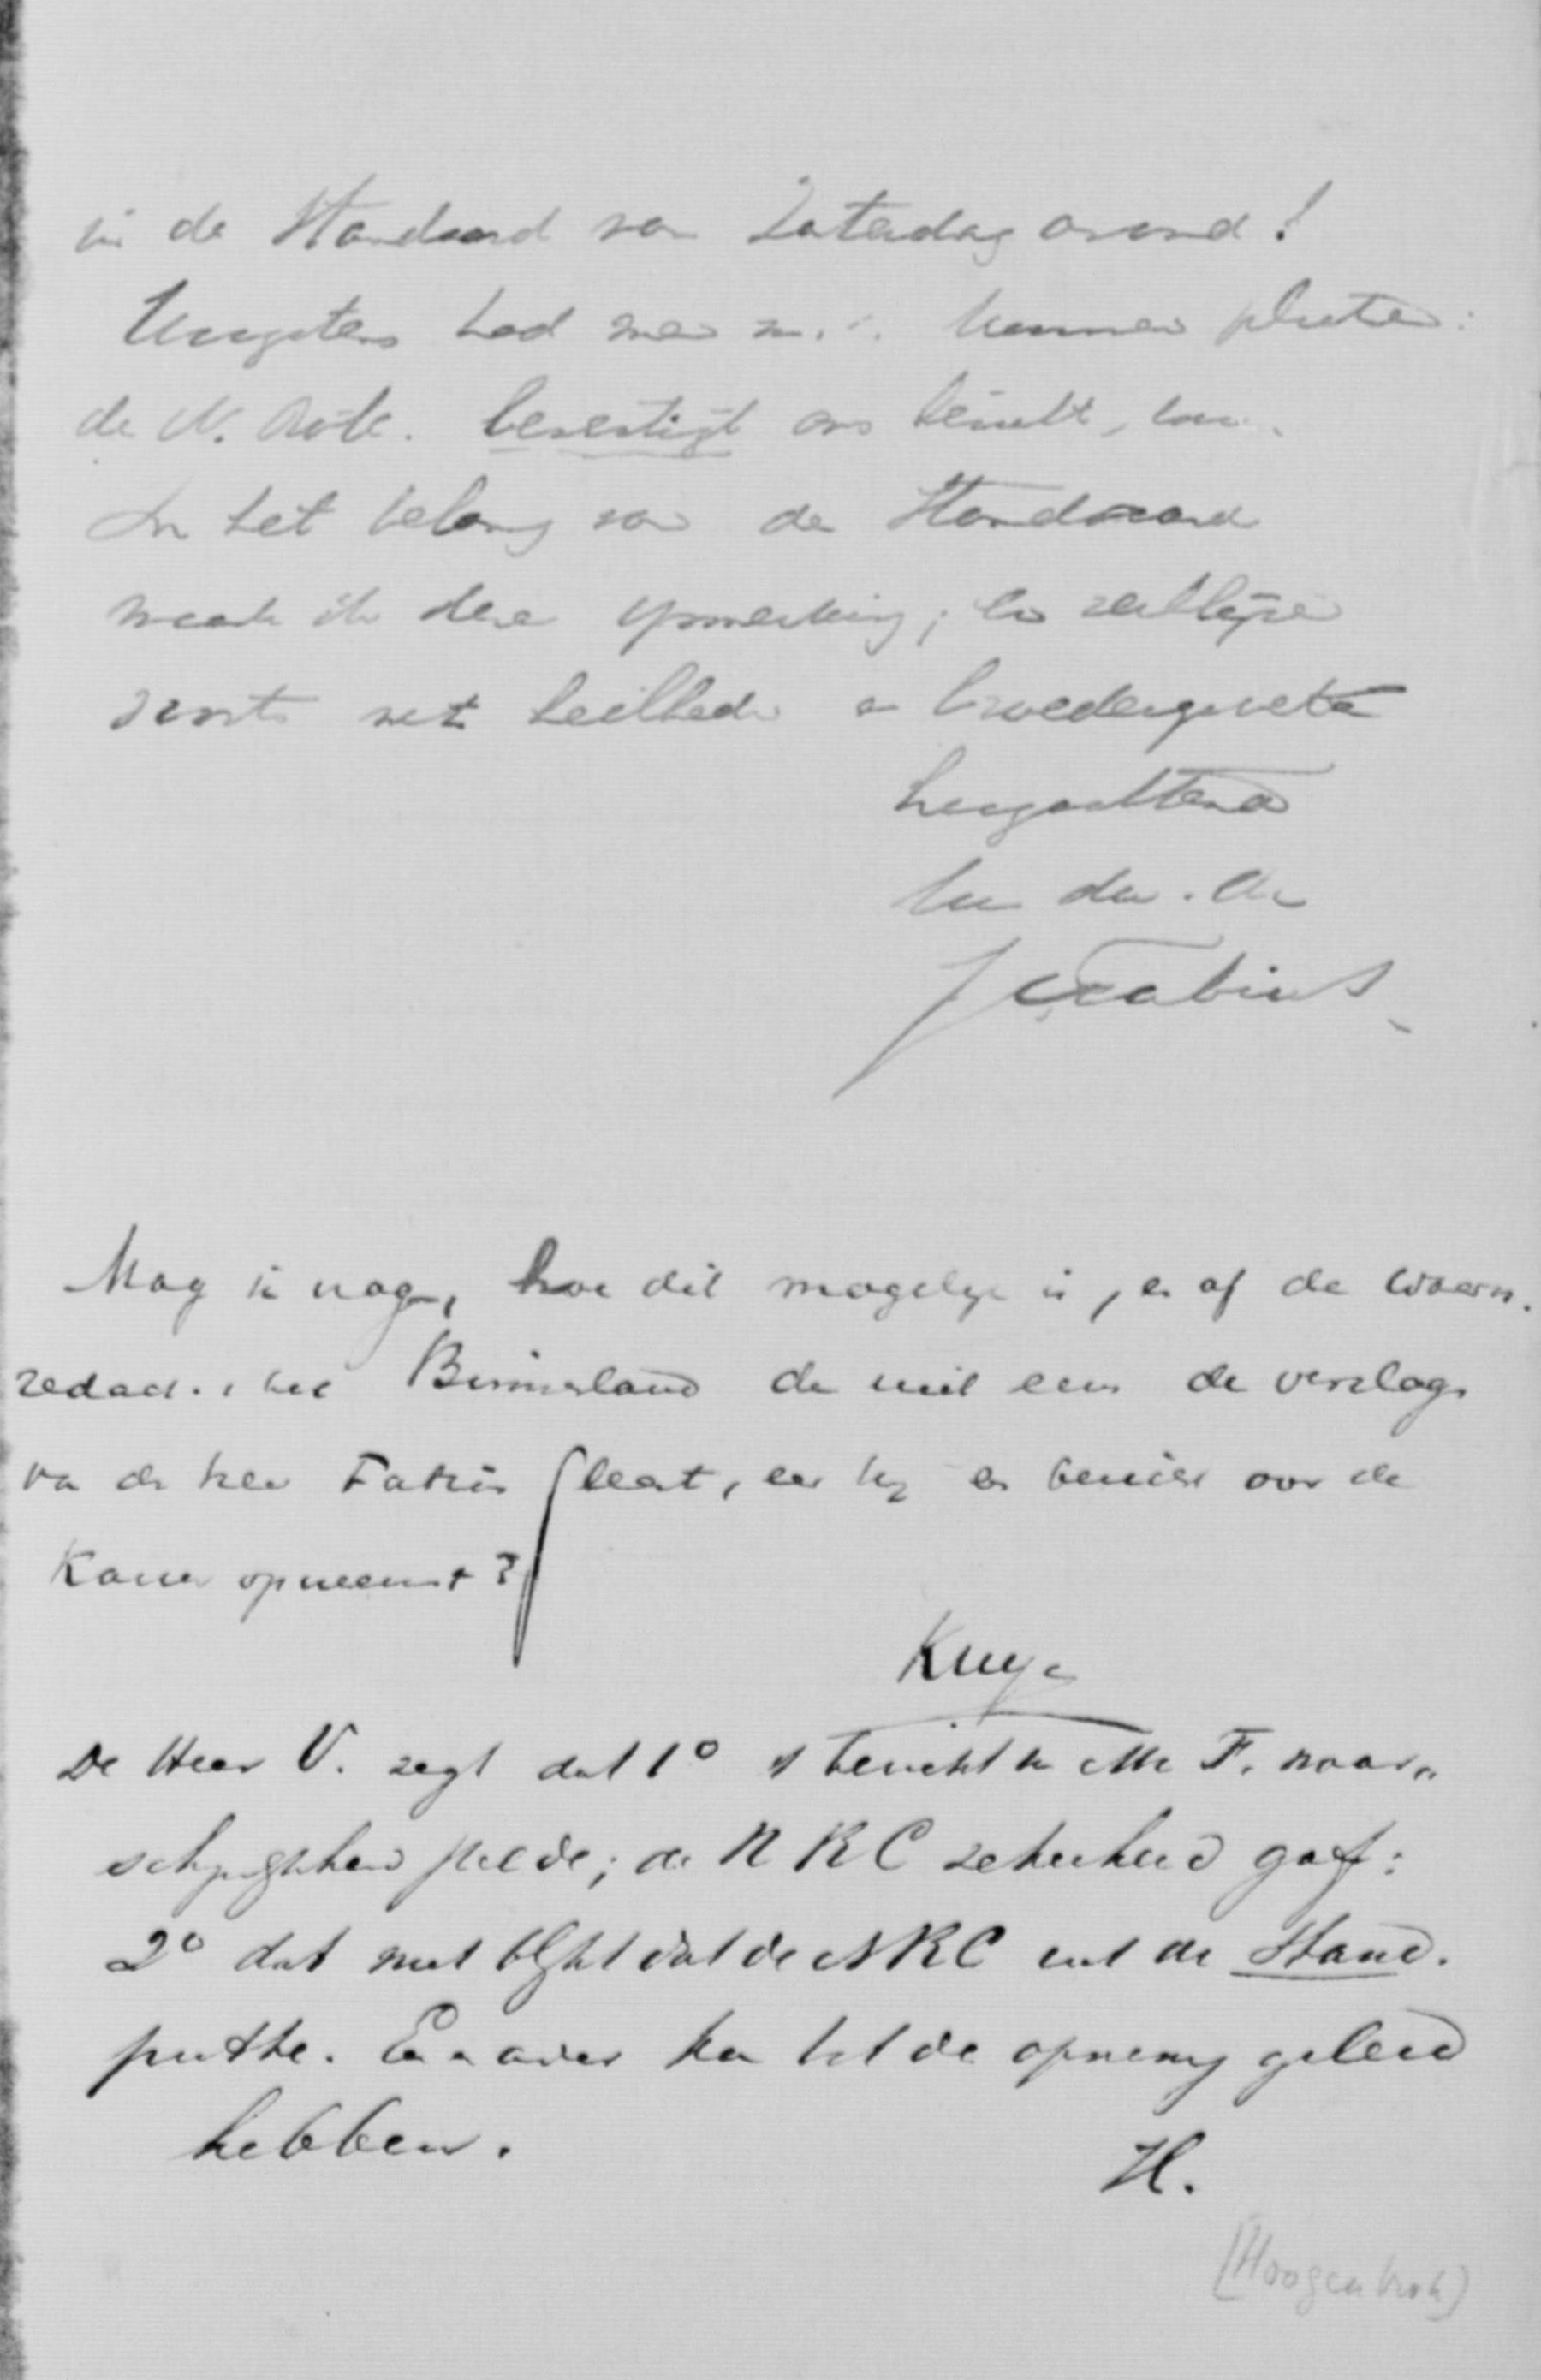 in de Standaard van Zaterdagavond!
Hoogstens had men m.i. kunnen plaatsen:
de N. Rott. bevestigt ons bericht, enz.
In het belang van de Standaard
maak ik deze opmerking; en
met heilbede en broedergroeten
hoogachtend
Uw dw. dr
J C Fabius
Mag ik vragen, hoe dit mogelijk is, en of de waarn.
redact. v. het Binnenland de niet eens de verslagen
van den heer Fabius leest, eer hij een bericht over de
Kamer opneemt?
Kuyper
De Heer V. zegt dat 1° 't bericht v. Mr F. waar-
schijnlijkheid stelde; de NRC zekerheid gaf:
2° dat niet blijkt dat de NRC uit de Stand.
putte. Een en ander kan tot de opneming geleid
hebben.
H.
(Hoogenbirk)